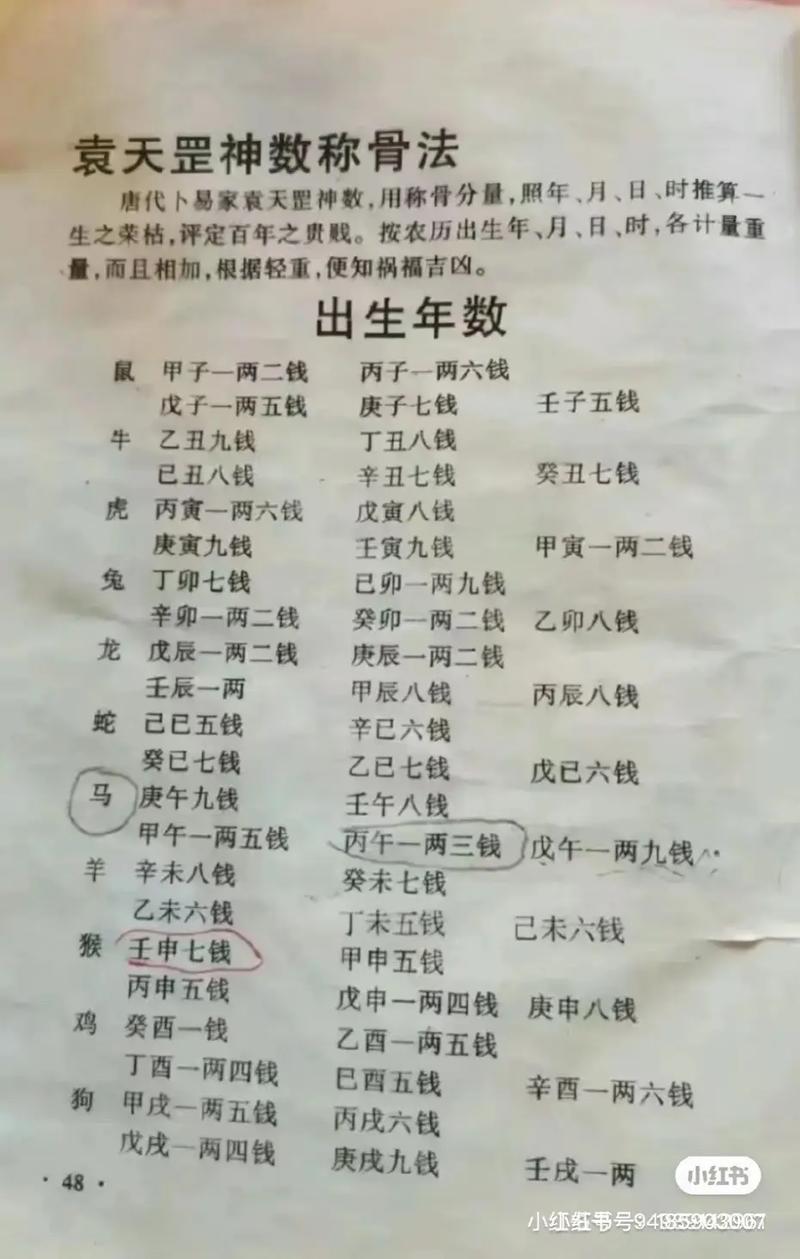 袁天罡神数称骨法
唐代卜易家袁天罡神数,用称骨分量,照年、月、日、时推算一
生之荣枯,评定百年之贵贱。按农历出生年、月、日、时,各计量重
量,而且相加,根据轻重,便知祸福吉凶。
出生年数
鼠 甲子一两二钱 丙子一两六钱
戊子一两五钱 庚子七钱 壬子五钱
牛 乙丑九钱 丁丑八钱
已丑八钱 辛丑七钱 癸丑七钱
虎 丙寅一两六钱 戊寅八钱
庚寅九钱 壬寅九钱 甲寅一两二钱
兔 丁卯七钱 已卯一两九钱
辛卯一两二钱 癸卯一两二钱 乙卯八钱
龙 戊辰一两二钱 庚辰一两二钱
壬辰一两 甲辰八钱 丙辰八钱
蛇 己巳五钱 辛巳六钱
癸巳七钱 乙巳七钱 戊已六钱
马 庚午九钱 壬午八钱
甲午一两五钱 丙午一两三钱 戊午一两九钱
羊 辛未八钱 癸未七钱
乙未六钱 丁未五钱 己未六钱
猴 壬申七钱 甲申五钱
丙申五钱 戊申一两四钱 庚申八钱
鸡 癸酉一钱 乙酉一两五钱
丁酉一两四钱 巳酉五钱 辛酉一两六钱
狗 甲戌一两五钱 丙戌六钱
戊戌一两四钱 庚戌九钱 壬戌一两
· 48 ·
小红书